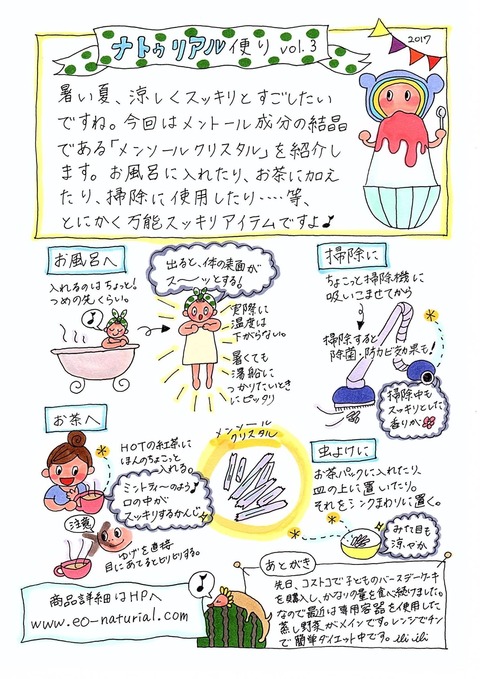 ナトゥリアル便り vol.3
2017
暑い夏、涼しくスッキリとすごしたい
ですね。今回はメントール成分の結晶
である「メンソールクリスタル」を紹介し
ます。お風呂に入れたり、お茶に加え
たり、掃除に使用したり‥‥等、
とにかく万能スッキリアイテムですよ♪
お風呂へ
入れるのはちょっと!
つめの先くらい。
♪
出ると、体の表面が
ス〜〜ッとする!
実際に
温度は
下がらない。
暑くても
湯船に
つかりたいとき
にピッタリ
掃除に
ちょこっと掃除機に
吸いこませてから
掃除すると
除菌・防カビ効果も!
掃除中も
スッキリとした
香りが
お茶へ
HOTの紅茶に
ほんのちょこっと
入れる。
ミンティ〜のよう♪
口の中が
スッキリするかんじ
注意
ゆげを直接
目にあてるとヒリヒリする。
メンソール
クリスタル
虫よけに
お茶パックに入れたり、
皿の上に置いたり。
それをシンクまわりに置く。
みた目も
涼やか
商品詳細はHPへ
www.eo-naturial.com
♪
あとがき
先日、コストコで子どものバースデーケーキ
を購入し、かなりの量を食べ続けました。
なので最近は専用容器を使用した
蒸し野菜がメインです。レンジでチン
で簡単ダイエット中です。